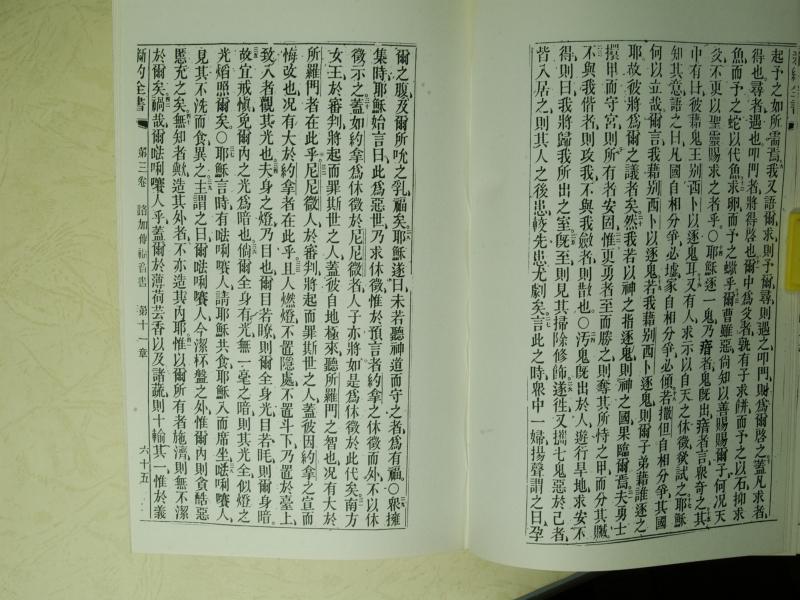 起予之如所需焉我又語爾求則予爾尋則遇之叩門則爲爾啓之蓋凡求者
得也尋者遇也叩門者將得啓也爾中爲父者孰有子求餅而予之以石抑求
魚而予之蛇以代魚求卵而予之蠍乎爾曹雖惡尙知以善賜賜爾子何况天
父不更以聖靈賜求之者乎○耶穌逐一鬼乃瘖者鬼旣出瘖者言衆奇之其
中有曰彼藉鬼王別西卜以逐鬼耳又有人求示以自天之休徵欲試之耶穌
知其意語之曰凡國自相分爭必墟家自相分爭必傾若撒但自相分爭其國
何以立哉爾言我藉別西卜以逐鬼若我藉別西卜逐鬼則爾子弟藉誰逐之
耶故彼將爲爾之議者矣然我若以神之指逐鬼則神之國果臨爾焉夫勇士
擐甲而守宮則所有者安固惟更勇者至而勝之則奪其所恃之甲而分其贓
不與我偕者則攻我不與我斂者則散也○汚鬼旣出於人遊行旱地求安不
得則曰我將歸我所出之室旣至則見其掃除修飾遂往又攜七鬼惡於己者
皆入居之則其人之後患較先患尤劇矣言此之時衆中一婦揚聲謂之曰孕
爾之腹及爾所吮之乳福矣耶穌遂曰未若聽神道而守之者爲有福○衆擁
集時耶穌始言曰此爲惡世乃求休徵惟於預言者約拿之休徵而外不以休
徵示之蓋如約拿爲休徵於尼尼微者人子亦將如是爲休徵於此代矣南方
女王於審判將起而罪斯世之人蓋彼自地極來聽所羅門之智也况有大於
所羅門者在此乎尼尼微人於審判將起而罪斯世之人蓋彼因約拿之宣而
悔改也况有大於約拿者在此乎且人燃燈不置隱處不置斗下乃置於臺上
致入者觀其光也夫身之燈乃目也爾目若瞭則爾全身光目若眊則爾身暗
故宜戒愼免爾內之光爲暗也倘爾全身有光無一毫之暗則其光全似燈之
光焰照爾矣○耶穌言時有㗶唎㘔人請耶穌共食耶穌入而席坐㗶唎㘔人
見其不洗而食異之主謂之曰爾㗶唎㘔人今潔杯盤之外惟爾內則貪酷惡
慝充之矣無知者歟造其外者不亦造其內耶惟以爾所有者施濟則無不潔
於爾矣禍哉爾㗶唎㘔人乎蓋爾於薄荷芸香以及諸蔬則十輸其一惟於義
新約全書 第三卷 路加傳福音書 第十一章 六十五